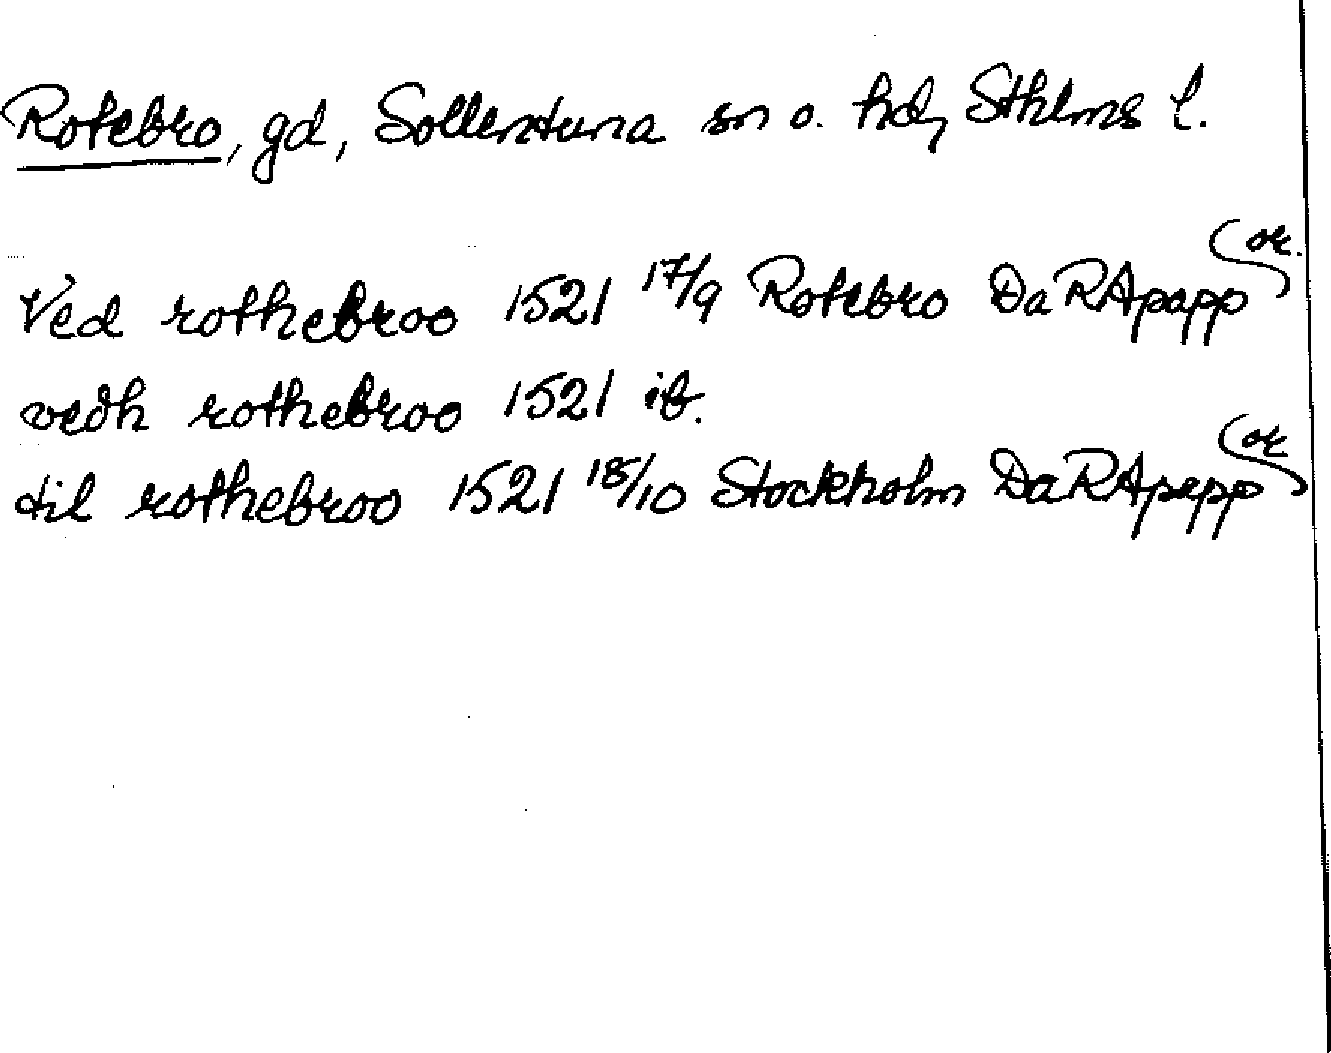 Rotebro, gd, Sollentuna sn o. hd, Sthlms l.
Ved rothebroo 1521 17/9 Rotebro DaRApapp or.
vedh rothebroo 1521 ib.
til rothebroo 1521 18/10 Stockholm DaRApapp or